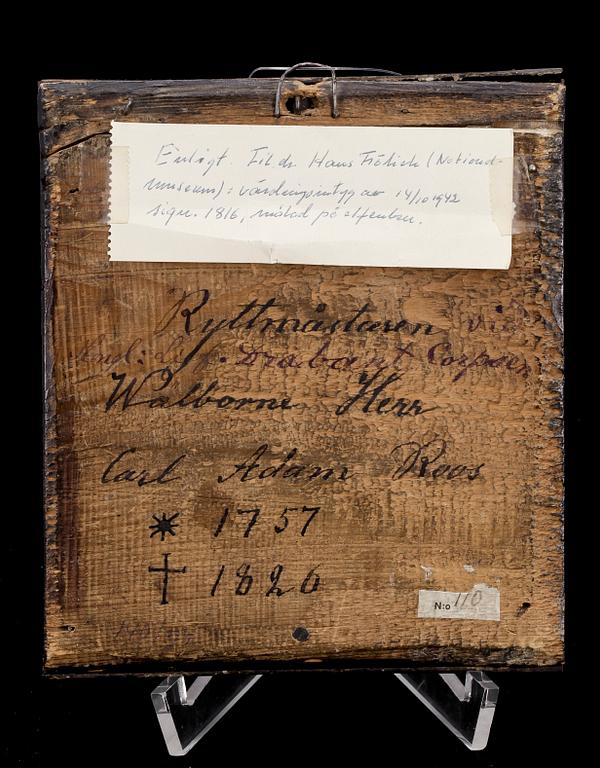 Enligt. Fil. dr. Hans Frölich (National-
museum): värdringsintyg av 14/10 1942
sign. 1816, målad på elfenben.
Ryttmästaren vid
Kngl: Lif. Drabant Corpsen
Walborne Herr
Carl Adam Roos
1757
1820
N:o 110